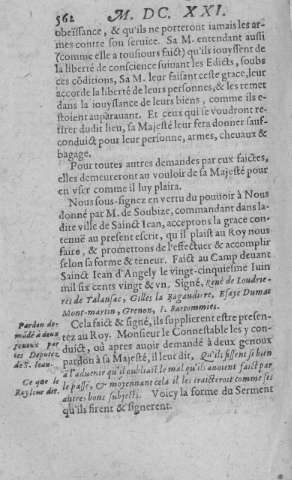 562 M. DC. XXI.
obeïssance, & qu'ils ne porteront iamais les ar-
mes contre son seruice. Sa M. entendant aussi
(comme elle a tousiours faict) qu'ils iouyssent de
la liberté de conscience suiuant les Edicts, soubs
ces cōditions, Sa M. leur faisant ceste grace, leur
accorde la liberté de leurs personnes, & les remet
dans la iouyssance de leurs biens, comme ils e-
stoient auparauant. Et ceux qui se voudront re-
tirer dudit lieu, sa Majesté leur fera donner sauf-
conduict pour leur personne, armes, cheuaux &
bagage.
Pour toutes autres demandes par eux faictes,
elles demeureront au vouloir de sa Majesté pour
en vser comme il luy plaira.
Nous sous-signez en vertu du pouuoir à Nous
donné par M. de Soubize, commandant dans la-
dite ville de Sainct Iean, acceptons la grace con-
tenuë au present escrit, qu'il plaist au Roy nous
faire, & promettons de l'effectuer & accomplir
selon sa forme & teneur. Faict au Camp deuant
Sainct Iean d'Angely le vingt-cinquiesme Iuin
mil six cents vingt & vn, Signé, René de
de Talansac, Gilles la Bagaudiere, Esaye Dumat
Mont-martin, Grenon,
Pardon de-
mãdé à deux
genoux par
les Deputez
de S. Iean.
Cela faict & signé, ils supplierent estre presen-
tez au Roy. Monsieur le Connestable les y con-
duict, où apres auoir demandé à deux genoux
pardon à sa Majesté, il leur dit, Qu'ils fissent si bien
à l'aduenir qu'il oubliast le mal qu'ils auoient faict par
le passé, & moyennant cela il les traicteroit comme ses
autres bons subjects. Voicy la forme du Serment
qu'ils firent & signerent.
Ce que le
Roy leur dit.